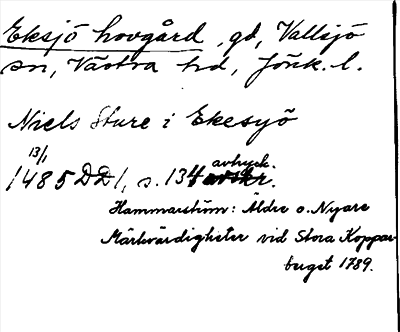 Eksjö hovgård, gd, Vallsjö
sn, Västra hd, Jönk. l.
Niels Sture i Ekesyö
13/1
avtryck.
1485 DD1, s. 134
Hammarström: Äldre o. Nyare
Märkvärdigheter vid Stora Koppar
berget 1789.